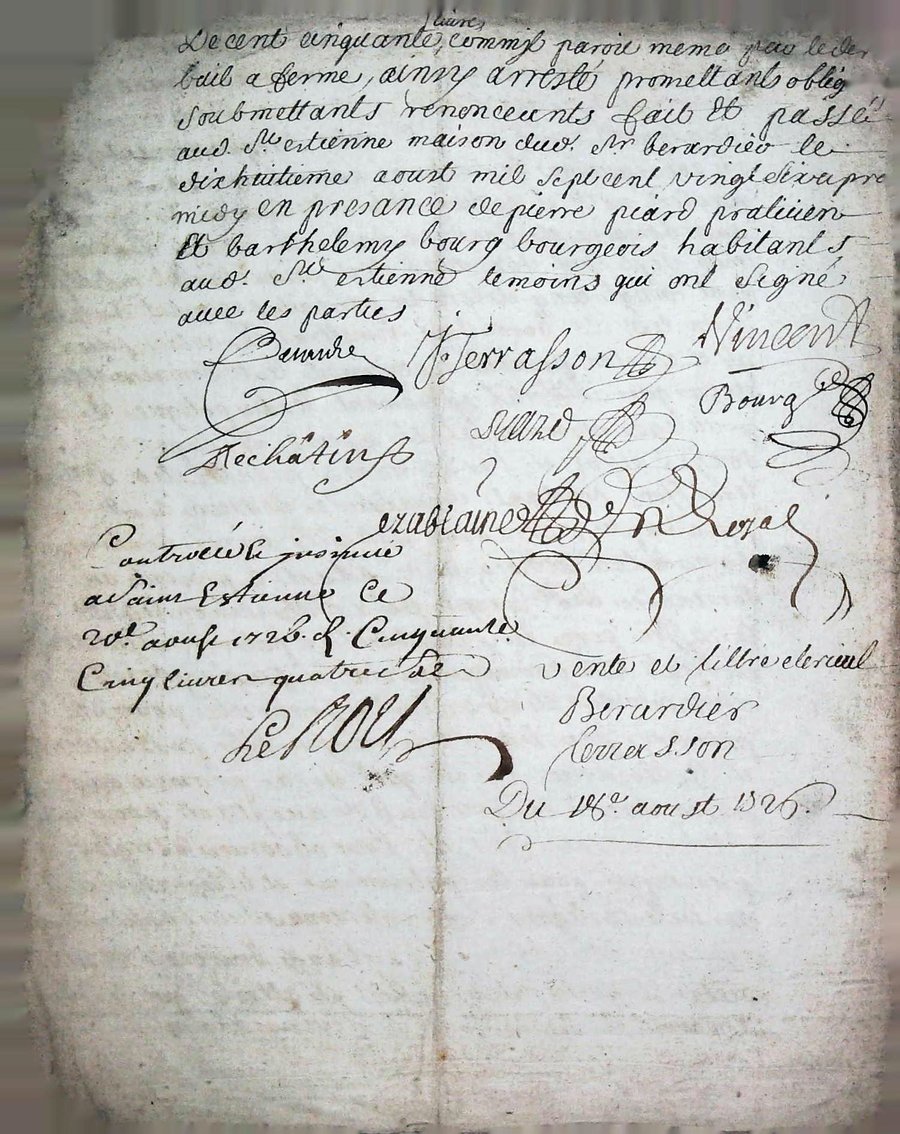 livres
De cent cinquante, commis paroit meme par le der
bail a ferme, ainsy arresté promettants oblig
soubmettants renonceants fait Et passé
aud. St. estienne maison dud. Sr berardier le
dixhuitieme aoust mil sept cent vingt six apre
midy en presance de pierre piard praticien
Et barthelemy bourg bourgeois habitants
aud. St. estienne temoins qui ont signé
avec les parties
J Terrasson Vincent
Bourg
piard
Dechâtins
Royal
Controllé & insinué
a Saint Estienne Ce
20e. aoust 1726. R. Cinquante
Cinq livres quatre
Le Roy
vente et tiltre clerical
Berardier
terrasson
Du 18e. aoust 1726.